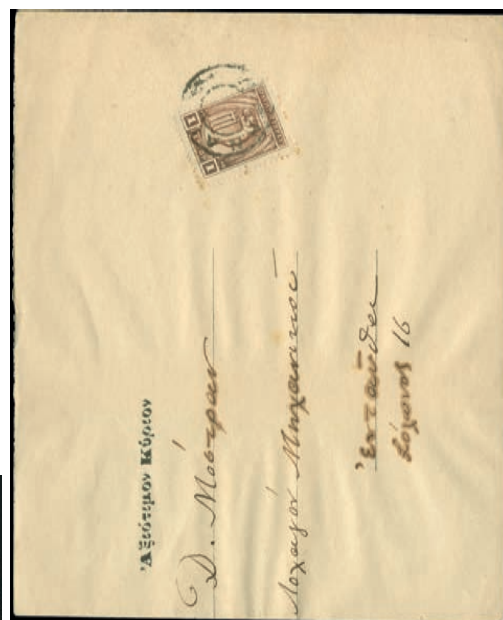 Ἀξιότιμον Κύριον
Δ. Μόστραν
Λοχαγόν Μηχανικοῦ
Ἐνταῦθα
Σόλωνος 16
1 1